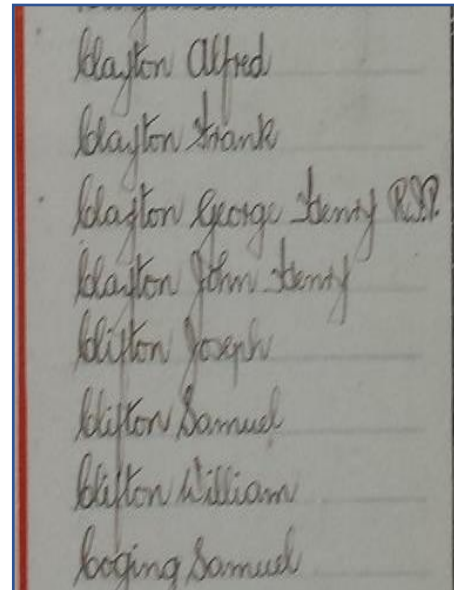 Clayton Alfred
Clayton Frank
Clayton George Henry R.I.P.
Clayton John Henry
Clifton Joseph
Clifton Samuel
Clifton William
Coging Samuel